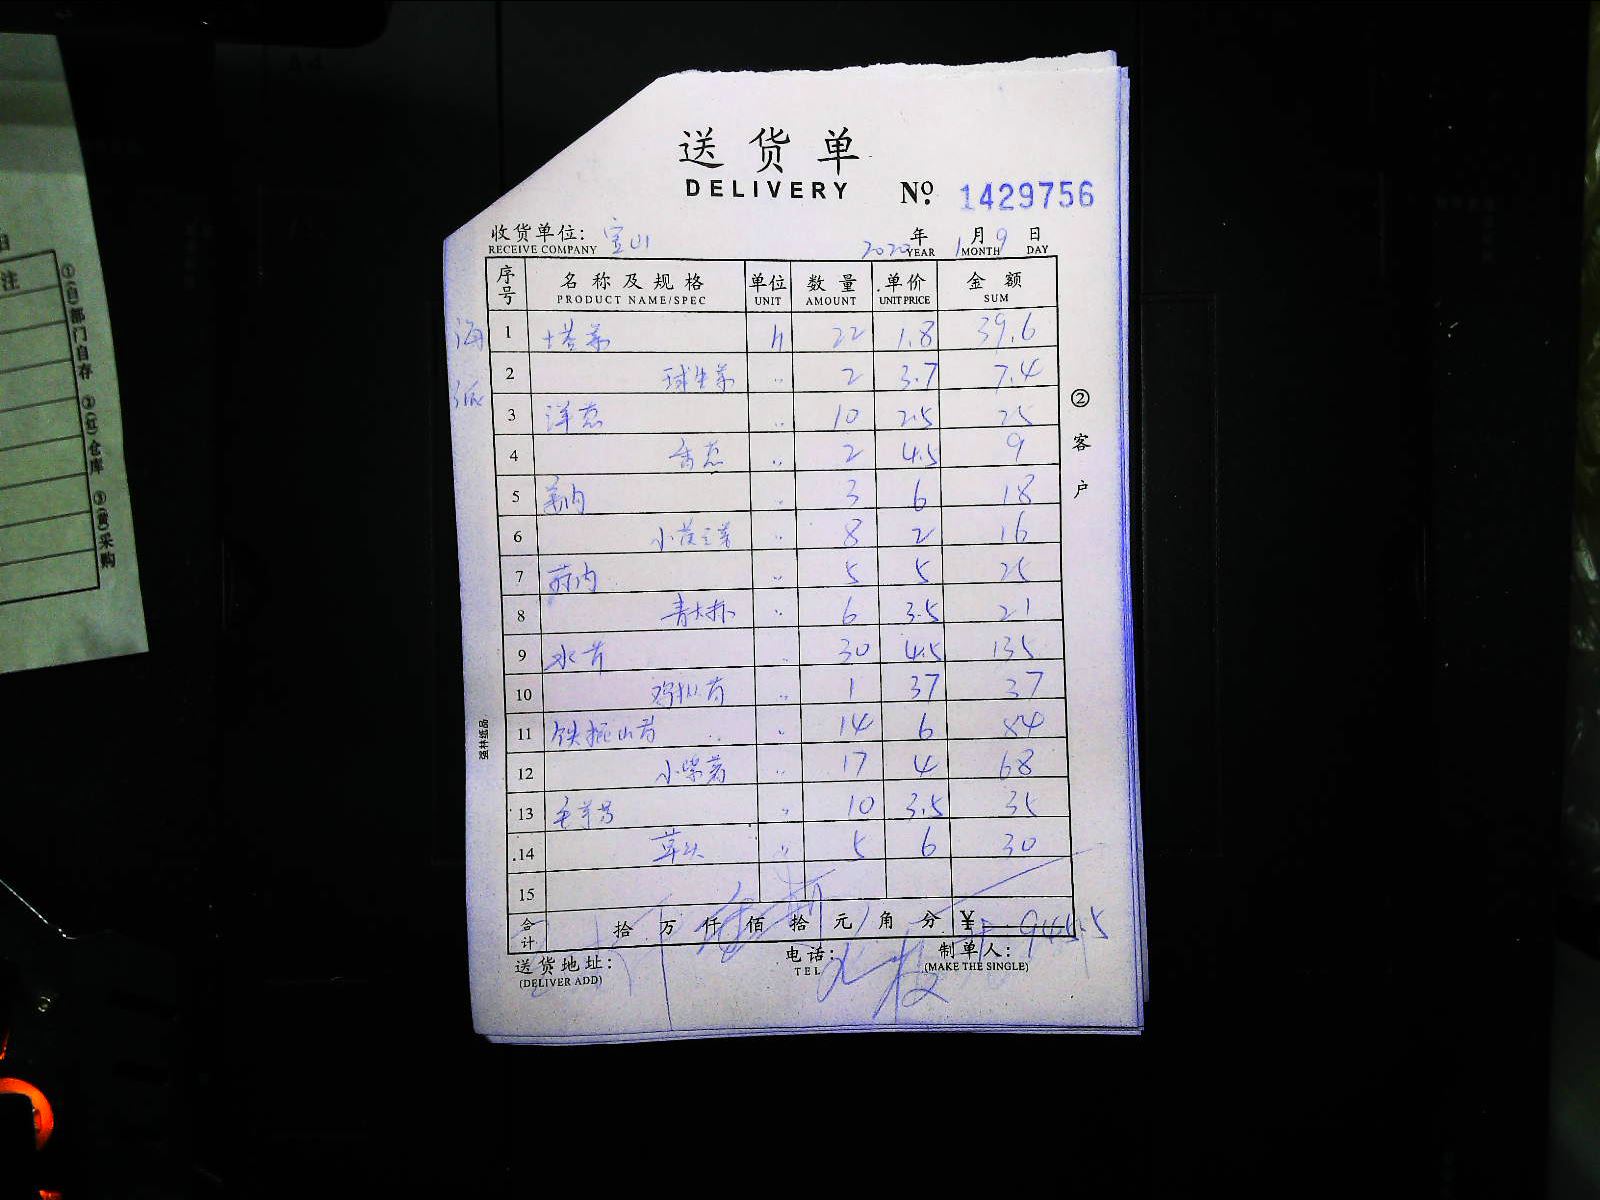 送货单
DELIVERY No. 1429756
收货单位: 宝山
RECEIVE COMPANY 2020年 YEAR 1月 MONTH 9日 DAY
序号 名称及规格 单位 数量 单价 金额
PRODUCT NAME/SPEC UNIT AMOUNT UNIT PRICE SUM
海
派
1 塔菜 斤 22 1.8 39.6
2 球生菜 〃 2 3.7 7.4
3 洋葱 〃 10 2.5 25
4 香葱 〃 2 4.5 9
5 姜肉 〃 3 6 18
6 小茨菜 〃 8 2 16
7 蒜肉 〃 5 5 25
8 青大椒 〃 6 3.5 21
9 水芹 〃 30 4.5 135
10 〃 1 37 37
11 铁棍山药 〃 14 6 84
12 小紫薯 〃 17 4 68
13 毛芋艿 〃 10 3.5 35
14 芋头 〃 5 6 30
15
合计 拾 万 仟 佰 拾 元 角 分 ¥
送货地址: 电话: 制单人:
(DELIVER ADD) TEL (MAKE THE SINGLE)
②客户
强林纸品
注
①(白)部门自存 ②(红)仓库 ③(黄)采购